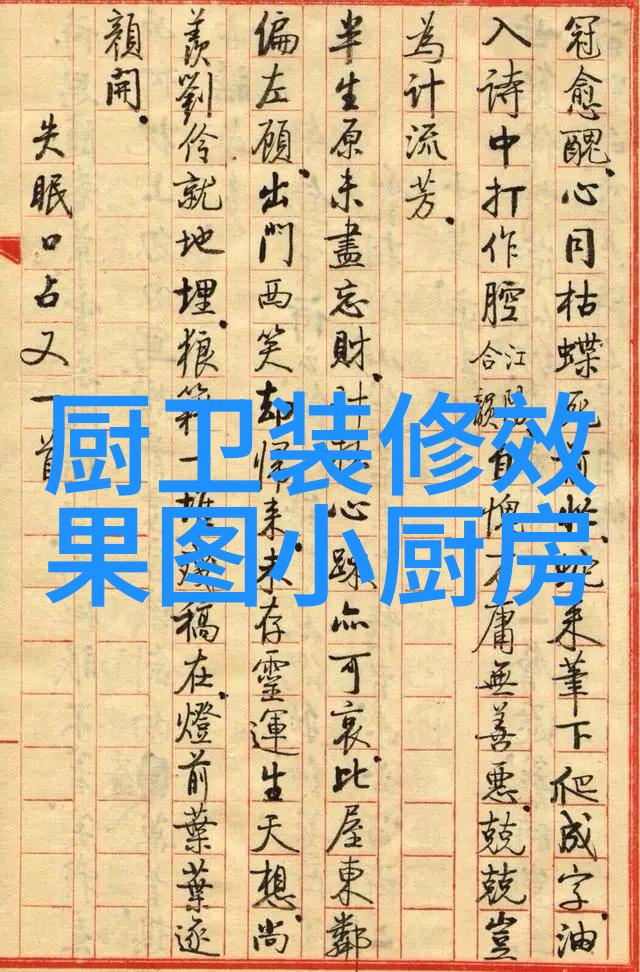 冠愈醜。心同枯蝶来筆下爬成字。油
入詩中打作腔合江陽韻自愧庸無善惡。兢兢豈
為計流芳。
半生原未盡忘財。計拙心疎亦可哀。比屋東鄰
偏左顧。出門西笑却歸来。未存靈運生天想。尚
羨劉伶就地埋。狼籍一堆殘稿在。燈前葉葉逐
顏開。
失眠口占又一首
厨卫装修效
果图小厨房